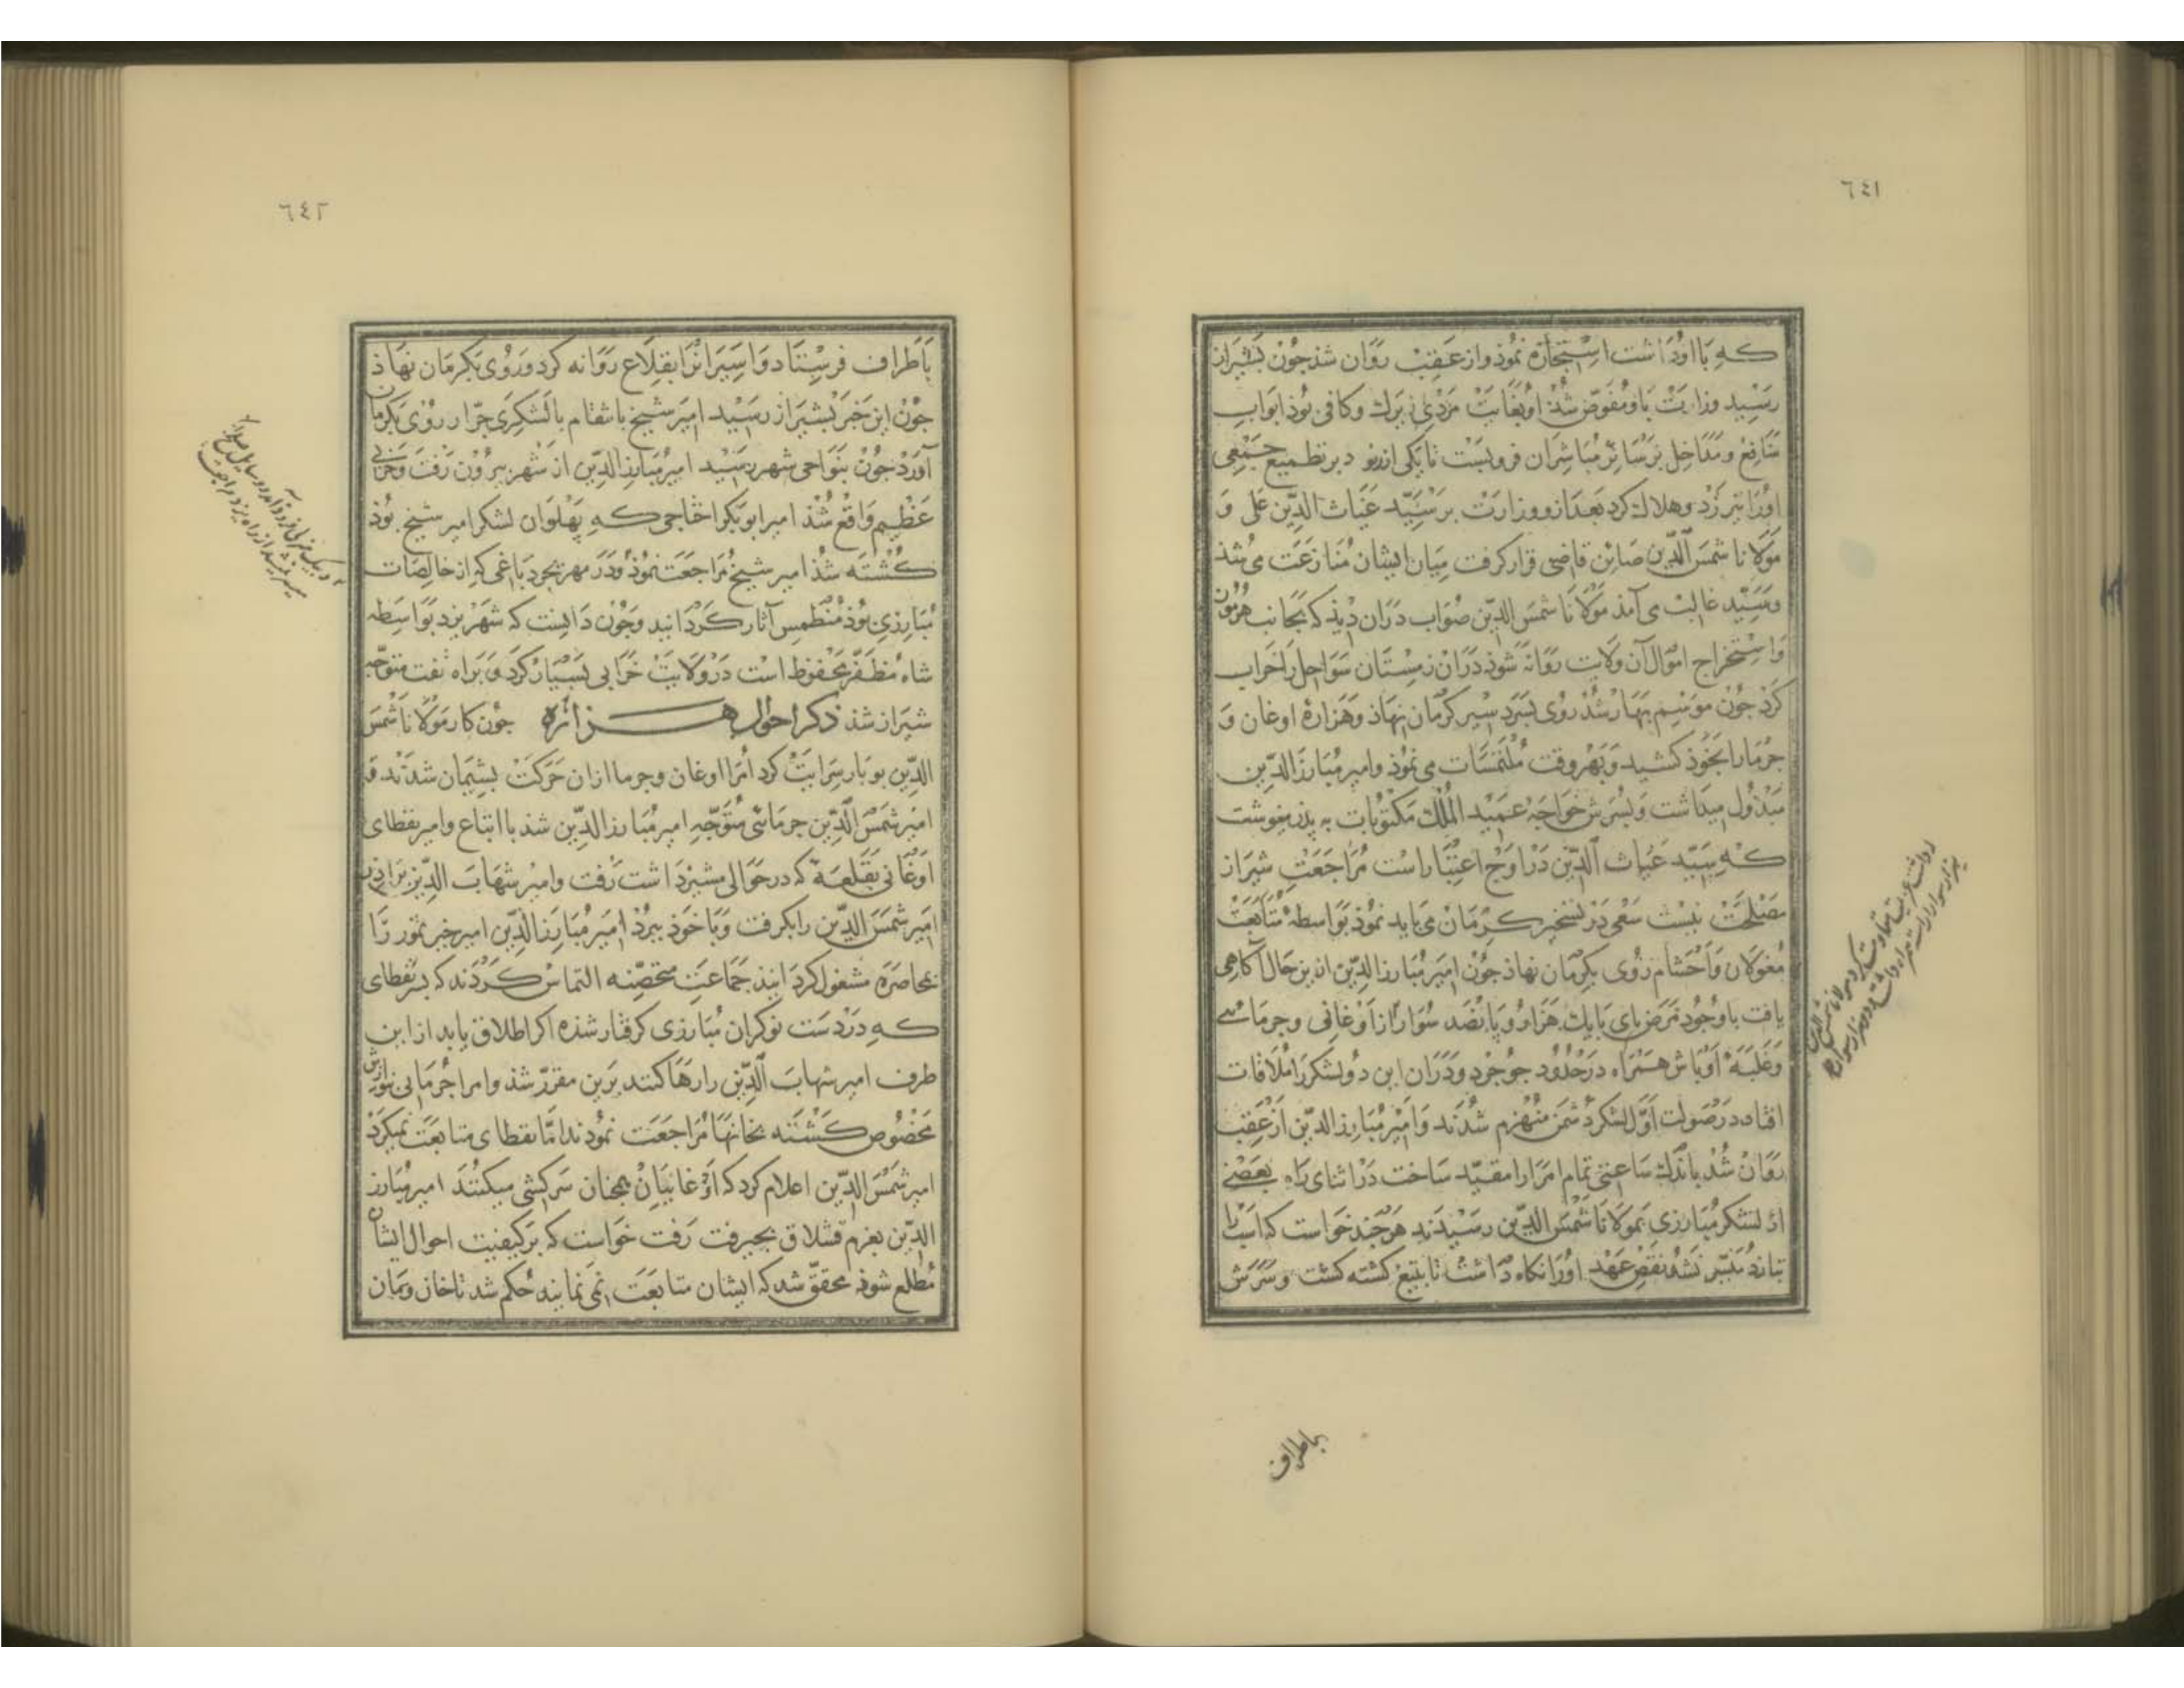 ٦٤١
كه با او داشت استجازه نمود و از عقب روان شد جون بشیراز
رسید وزارت باو مفوض شذ او بغایت مردی زیرك و کافی بوذ ابواب
منافع و مداخل بر سائر مباشران فرو بست تا یکی از نو در تطمیع جمعی
اورا تیر زد و هلاك کرد بعد ازو وزارت بر سید غیاث الدین علی و
مولانا شمس الدین صائن قاضی قرار کرفت میان ایشان منازعت می شذ
وسید غالب می آمذ مولانا شمس الدین صواب دران دیذ که بجانب هرموز
واستخراج اموال آن ولایت روانه شوذ دران زمستان سواحل را خراب
کرذ جون موسم بهار شد روی بسرد سیر کرمان نهاذ وهزارهٔ اوغان و
جرما را بخوذ کشید و بهر وقت ملتمسات می نموذ وامیر مبارز الدین
مبذول میداشت و پسرش خواجه عمید الملك مکتوبات به پذر می نوشت
که سید غیاث الدین در اوج اعتبار است مراجعت شیراز
مصلحت نیست سعی در تسخیر کرمان می باید نموذ بواسطهٔ متابعت
مغولان و احشام روی بکرمان نهاذ جون امیر مبارز الدین ازین حال آکاهی
یافت با وجود مرض پای با یك هزار و پانصد سوار از اوغانی و جرمائی
وغلبهٔ اوباش همراه در حدود جوجرد و دران این دو لشکر را ملاقات
افتاد در صولت اول لشکر دشمن منهزم شدند و امیر مبارز الدین از عقب
روان شد باندك ساعتی تمام امرا را مقید ساخت در اثنای راه بعضی
از لشکر مبارزی بمولانا شمس الدین رسیدند هر جند خواست که اسب را
بتازد میسر نشد نقض عهد اورا نکاه داشت تا بتیغ کشته کشت و سرش
باطراف
٦٤٢
باطراف فرستاد و اسیرانرا بقلاع روانه کرد و روی بکرمان نهاذ
جون این خبر بشیراز رسید امیر شیخ بانتقام با لشکری جرار روی بکرمان
آورد جون بنواحی شهر رسید امیر مبارز الدین از شهر بیرون رفت و حربی
عظیم واقع شذ امیر ابوبکر اخاجی که پهلوان لشکر امیر شیخ بوذ
کشته شذ امیر شیخ مراجعت نموذ و در مهریجرد باغی که از خالصات
مبارزی بوذ منطمس آثار کردانید و جون دانست که شهر یزد بواسطه
شاه مظفر محفوظ است در ولایت خرابی بسیار کرد و براه تفت متوجه
شیراز شد ذکر احوال هزاره جون کار مولانا شمس
الدین بوبار سرایت کرد امرا اوغان و جرما ازان حرکت پشیمان شدند و
امیر شمس الدین جرمائی متوجه امیر مبارز الدین شد با اتباع وامیر نقطای
اوغانی بقلعهٔ که در حوالی مشیز داشت رفت وامیر شهاب الدین برادر
امیر شمس الدین را بکرفت و با خوذ ببرد امیر مبارز الدین امیر خیر تمور را
بمحاصره مشغول کردانید جماعت متحصنه التماس کردند که پسر نقطای
که در دست نوکران مبارزی کرفتار شذه اکر اطلاق یابد ازین
طرف امیر شهاب الدین را رها کنند برین مقرر شذ وامرا جرمایی بنوازش
مخصوص کشته بخانها مراجعت نمودند اما نقطای متابعت نمیکرد
امیر شمس الدین اعلام کرد که اوغانیان همجنان سرکشی میکنند امیر مبارز
الدین بعزم قشلاق بجیرفت رفت خواست که بر کیفیت احوال ایشان
مطلع شوذ محقق شد که ایشان متابعت نمی نمایند حکم شد تا خان و مان